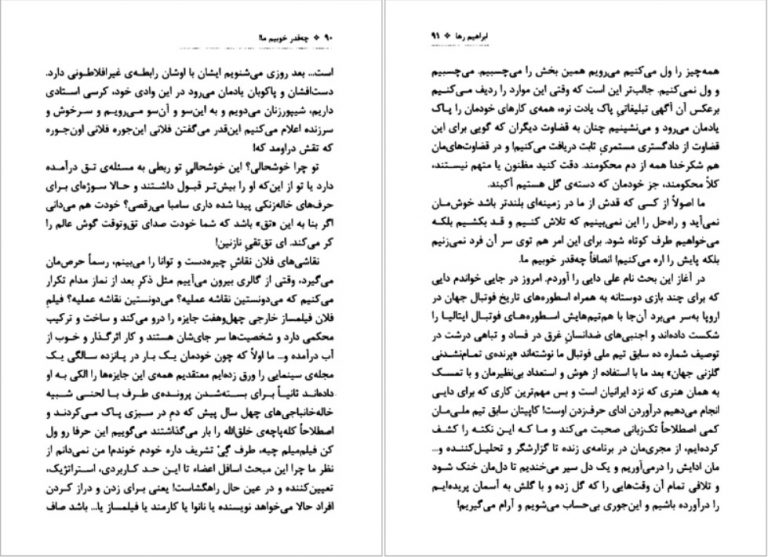 ۹۰ ❖ چه‌قدر خوبیم ما!
است... بعد روزی می‌شنویم ایشان با اوشان رابطه‌ی غیرافلاطونی دارد.
دست‌افشان و پاکوبان یادمان می‌رود در این وادی خود، کرسی استادی
داریم، شیپورزنان می‌دویم و به این‌سو و آن‌سو می‌رویم و سرخوش و
سرزنده اعلام می‌کنیم این‌قدر می‌گفتن فلانی این‌جوره فلانی اون‌جوره
که تقش دراومد که!
تو چرا خوشحالی؟ این خوشحالی تو ربطی به مسئله‌ی تق درآمده
دارد یا تو از این‌که او را بیش‌تر قبول داشتند و حالا سوژه‌ای برای
حرف‌های خاله‌زنکی پیدا شده داری سامبا می‌رقصی؟ خودت هم می‌دانی
اگر بنا به این «تق» باشد که شما خودت صدای تق‌وتوقت گوش عالم را
کر می‌کند. ای تق‌تقیِ نازنین!
نقاشی‌های فلان نقاشِ چیره‌دست و توانا را می‌بینم، رسماً حرص‌مان
می‌گیرد، وقتی از گالری بیرون می‌آییم مثل ذکرِ بعد از نماز مدام تکرار
می‌کنیم که می‌دونستین نقاشه عملیه؟ می‌دونستین نقاشه عملیه؟ فیلم
فلان فیلمساز خارجی چهل‌وهفت جایزه را درو می‌کند و ساخت و ترکیب
محکمی دارد و شخصیت‌ها سر جای‌شان هستند و کار اثرگذار و خوب از
آب درآمده و... ما اولاً که چون خودمان یک بار در پانزده سالگی یک
مجله‌ی سینمایی را ورق زده‌ایم معتقدیم همه‌ی این جایزه‌ها را الکی به او
داده‌اند ثانیاً برای بسته‌شدن پرونده‌ی طرف با لحنی شبیه
خاله‌خانباجی‌های چهل سال پیش که دم در سبزی پاک می‌کردند و
اصطلاحاً کله‌پاچه‌ی خلق‌الله را بار می‌گذاشتند می‌گوییم این حرفا رو ول
کن فیلم‌میلم چیه، طرف گِیْ تشریف داره خودم خوندم! من نمی‌دانم از
نظر ما چرا این مبحث اسافل اعضاء تا این حد کاربردی، استراتژیک،
تعیین‌کننده و در عین حال راهگشاست! یعنی برای زدن و دراز کردن
افراد حالا می‌خواهد نویسنده یا نانوا یا کارمند یا فیلمساز یا... باشد صاف
ابراهیم رها ❖ ۹۱
همه‌چیز را ول می‌کنیم می‌رویم همین بخش را می‌چسبیم. می‌چسبیم
و ول نمی‌کنیم. جالب‌تر این است که وقتی این موارد را ردیف می‌کنیم
برعکس آن آگهی تبلیغاتیِ پاک یادت نره، همه‌ی کارهای خودمان را پاک
یادمان می‌رود و می‌نشینیم چنان به قضاوت دیگران که گویی برای این
قضاوت از دادگستری مستمری ثابت دریافت می‌کنیم! و در قضاوت‌های‌مان
هم شکرخدا همه از دم محکومند. دقت کنید مظنون یا متهم نیستند،
کلاً محکومند، جز خودمان که دسته‌ی گل هستیم آکبند.
ما اصولاً از کسی که قدش از ما در زمینه‌ای بلندتر باشد خوش‌مان
نمی‌آید و راه‌حل را این نمی‌بینیم که تلاش کنیم و قد بکشیم بلکه
می‌خواهیم طرف کوتاه شود. برای این امر هم توی سر آن فرد نمی‌زنیم
بلکه پایش را اره می‌کنیم! انصافاً چه‌قدر خوبیم ما.
در آغاز این بحث نام علی دایی را آوردم. امروز در جایی خواندم دایی
که برای چند بازی دوستانه به همراه اسطوره‌های تاریخ فوتبال جهان در
اروپا به‌سر می‌برد آن‌جا با هم‌تیم‌هایش اسطوره‌های فوتبال ایتالیا را
شکست داده‌اند و اجنبی‌های ضدانسانِ غرق در فساد و تباهی درشت در
توصیف شماره ده سابق تیم ملی فوتبال ما نوشته‌اند «برنده‌ی تمام‌نشدنی
گلزنی جهان» بعد ما با استفاده از هوش و استعداد بی‌نظیرمان و با تمسک
به همان هنری که نزد ایرانیان است و بس مهم‌ترین کاری که برای دایی
انجام می‌دهیم درآوردن ادای حرف‌زدن اوست! کاپیتان سابق تیم ملی‌مان
کمی اصطلاحاً تک‌زبانی صحبت می‌کند و ما که این نکته را کشف
کرده‌ایم، از مجری‌مان در برنامه‌ی زنده تا گزارشگر و تحلیل‌کننده و...
مان ادایش را درمی‌آوریم و یک دل سیر می‌خندیم تا دل‌مان خنک شود
و تلافی تمام آن وقت‌هایی را که گل زده و با گلش به آسمان پریده‌ایم
را درآورده باشیم و این‌جوری بی‌حساب می‌شویم و آرام می‌گیریم!